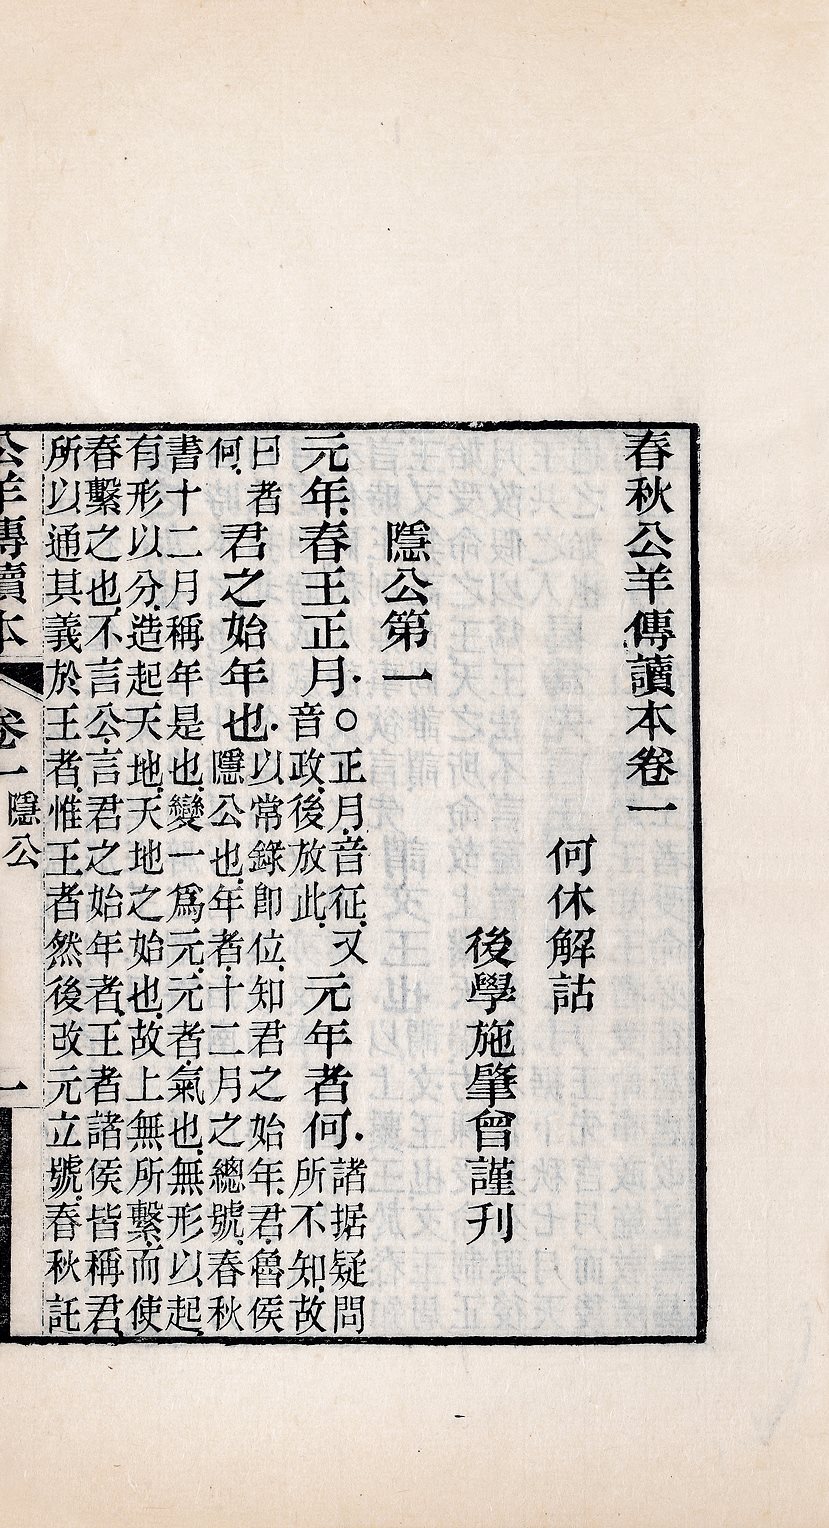 春秋公羊傳讀本卷一
何休解詁
後學施肇曾謹刊
隱公第一
元年、春王正月、○正月、音征、又音政、後放此、元年者何、諸据疑問所不知、故
曰者何、君之始年也、以常錄卽位、知君之始年、君、魯侯隱公也、年者、十二月之總號、春秋
書十二月稱年是也、變一爲元、元者、氣也、無形以起、
有形以分、造起天地、天地之始也、故上無所繫、而使
春繫之也、不言公、言君之始年者、王者諸侯皆稱君、
所以通其義於王者、惟王者然後改元立號、春秋託
公羊傳讀本 卷一 隱公 一